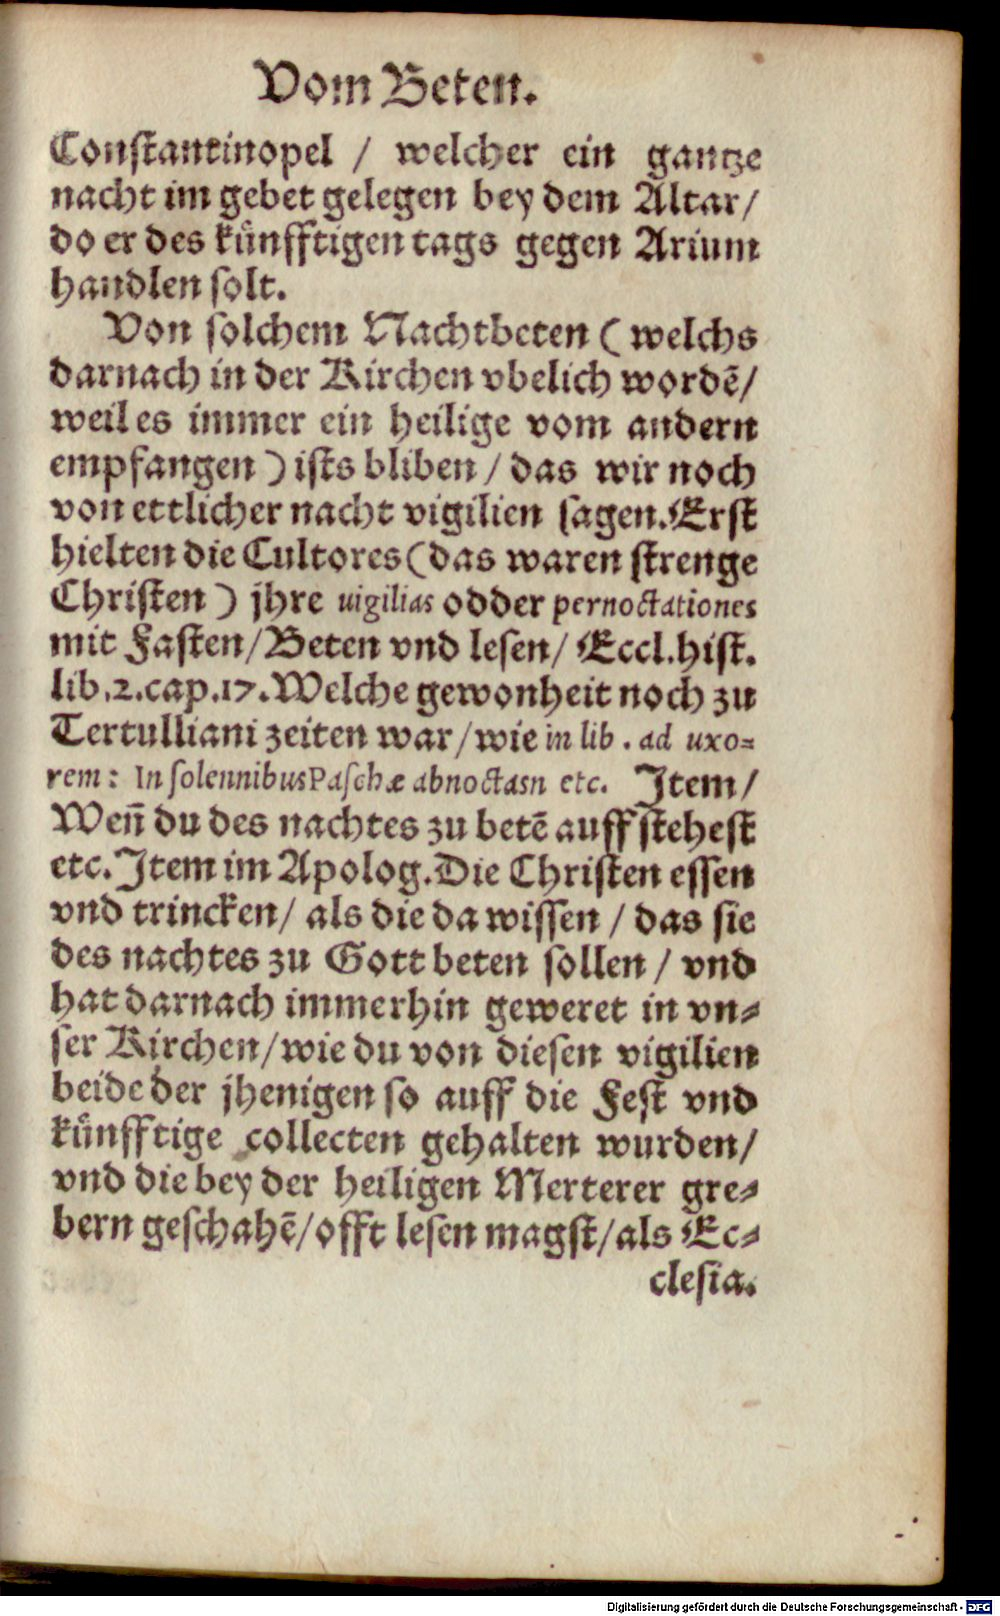 Vom Beten.
Constantinopel / welcher ein gantze
nacht im gebet gelegen bey dem Altar/
do er des kuͤnfftigen tags gegen Arium
handlen solt.
Von solchem Nachtbeten ( welchs
darnach in der Kirchen vbelich wordē/
weil es immer ein heilige vom andern
empfangen ) ists bliben / das wir noch
von ettlicher nacht vigilien sagen. Erst
hielten die Cultores (das waren strenge
Christen ) jhre uigilias odder pernoctationes
mit Fasten/ Beten vnd lesen/ Eccl. hist.
lib. 2. cap. 17. Welche gewonheit noch zu
Tertulliani zeiten war/ wie in lib . ad uxo=
rem : In solennibus Paschæ abnoctasn etc. Item/
Weñ du des nachtes zu betē auff stehest
etc. Item im Apolog. Die Christen essen
vnd trincken/ als die da wissen / das sie
des nachtes zu Gott beten sollen / vnd
hat darnach immerhin geweret in vn=
ser Kirchen/ wie du von diesen vigilien
beide der jhenigen so auff die Fest vnd
kuͤnfftige collecten gehalten wurden/
vnd die bey der heiligen Merterer gre=
bern geschahē/ offt lesen magst/ als Ec=
clesia.
Digitalisierung gefördert durch die Deutsche Forschungsgemeinschaft - DFG